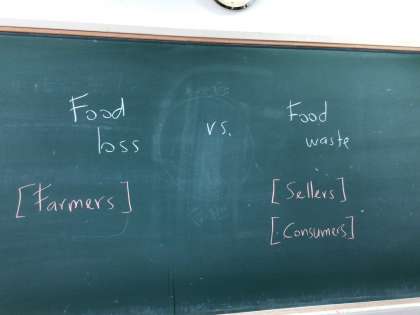 Food loss vs. Food waste
[Farmers]
[Sellers]
[Consumers]